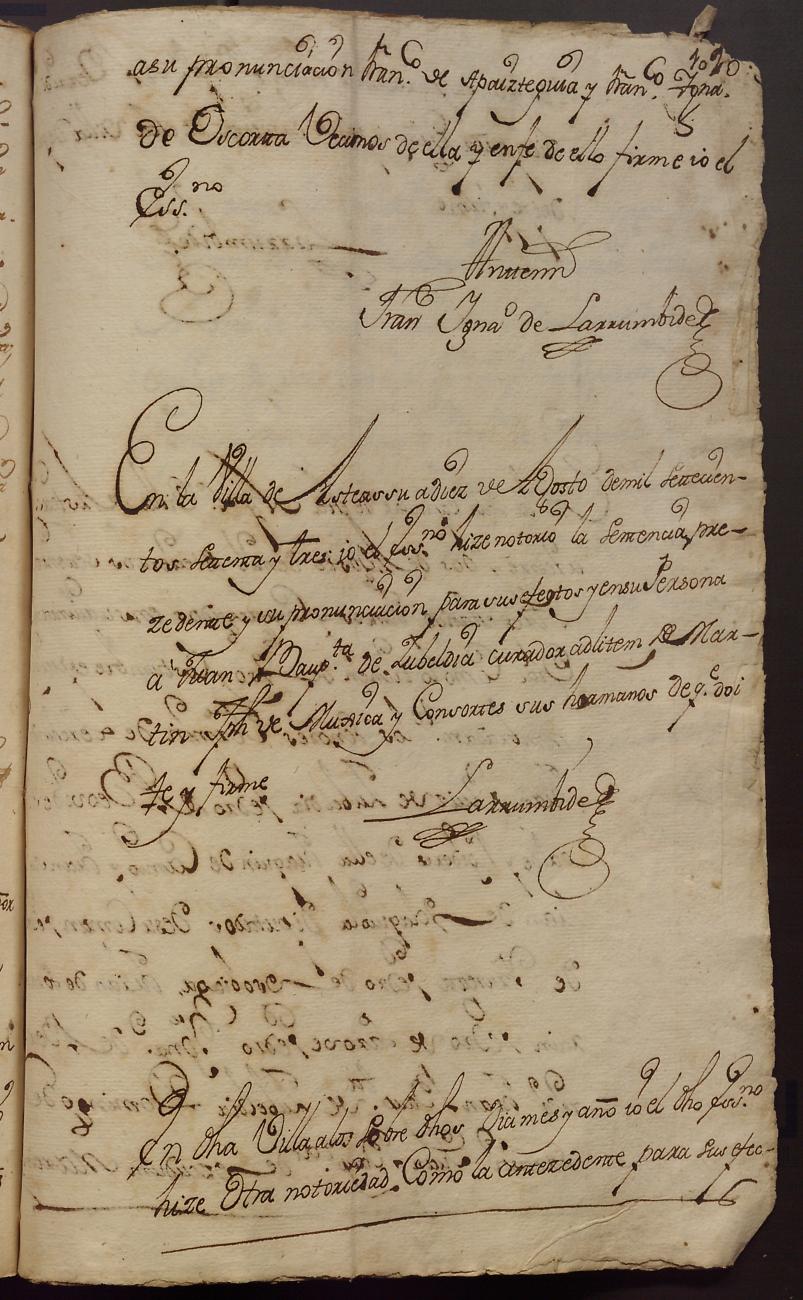 asu pronunciacion fran.co de Apaizteguia y fran.co Ygna.o
de Escorta Vecinos de ella y enfe de ello firme io el
Ess.no
Antemi
Fran.co Ygna.o de Larrumbide
En la Villa de Asteassu a diez de Agosto de mil setecien-
tos setenta y tres: io el Ess.no hize notorio la sentencia pre-
zedente y su pronunciacion para sus efectos y en su Persona
a Juan Baup.ta de Zubeldia curador adlitem de Mar-
tin Jph de Muxica y Consortes sus hermanos de q.e doi
fe y firme
Larrumbide
En dha Villa a los sobre dhos dia mes y año io el dho Ess.no
hize Otra notoriedad Como la antezedente para sus efec-